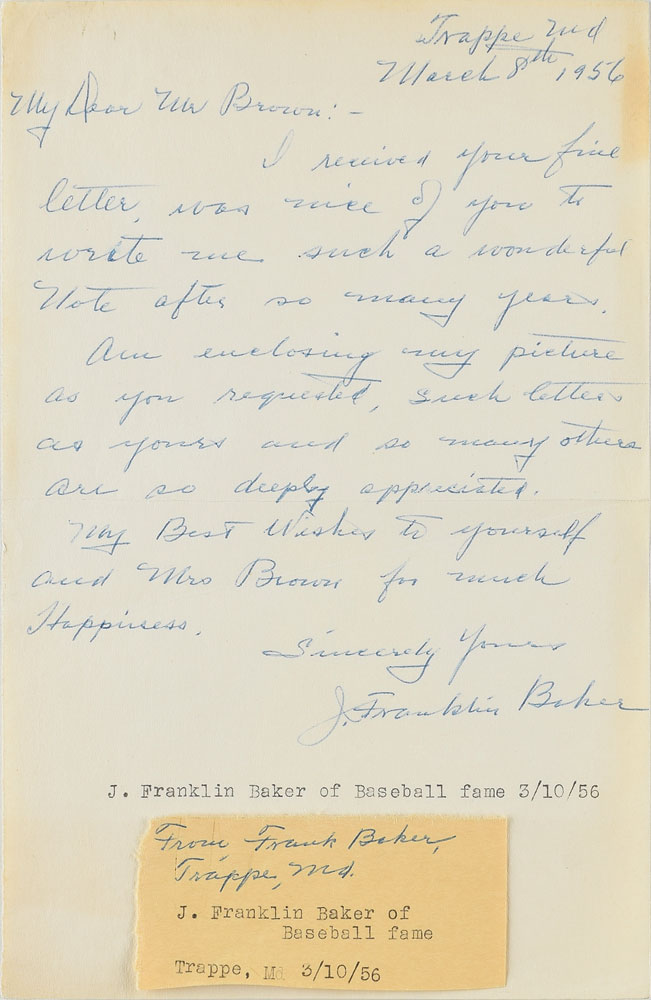 Trappe Md
March 8th, 1956
My Dear Mr Brown:-
I received your fine
letter, was nice of you to
write me such a wonderful
Note after so many years.
Am enclosing my picture
as you requested, such letters
as yours and so many others
are so deeply appreciated.
My Best Wishes to yourself
and Mrs Brown for much
Happiness.
Sincerely Yours
J. Franklin Baker
J. Franklin Baker of Baseball fame 3/10/56
From Frank Baker,
Trappe, Md.
J. Franklin Baker of
Baseball fame
Trappe, Md 3/10/56